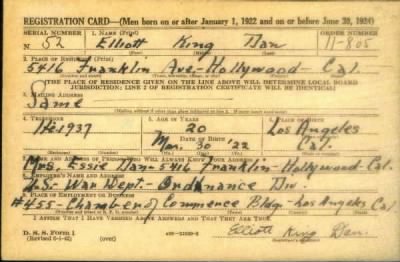 REGISTRATION CARD—(Men born on or after January 1, 1922 and on or before June 30, 1924)
SERIAL NUMBER 1. NAME (Print) ORDER NUMBER
N 52 Elliott King Dan 11-805
(First) (Middle) (Last)
2. PLACE OF RESIDENCE (Print)
5416 Franklin Ave-Hollywood-Cal.
[THE PLACE OF RESIDENCE GIVEN ON THE LINE ABOVE WILL DETERMINE LOCAL BOARD
JURISDICTION; LINE 2 OF REGISTRATION CERTIFICATE WILL BE IDENTICAL]
3. MAILING ADDRESS
Same
4. TELEPHONE 5. AGE IN YEARS 6. PLACE OF BIRTH
He1937 20 Los Angeles
DATE OF BIRTH
Mar. 30 '22 Cal.
7. NAME AND ADDRESS OF PERSON WHO WILL ALWAYS KNOW YOUR ADDRESS
Mrs. Essie Dan-5416 Franklin-Hollywood-Cal.
8. EMPLOYER'S NAME AND ADDRESS
U.S. War Dept.- Ordinance Div.
9. PLACE OF EMPLOYMENT OR BUSINESS
#455-Chamber of Commerce Bldg-Los Angeles Cal
I AFFIRM THAT I HAVE VERIFIED ABOVE ANSWERS AND THAT THEY ARE TRUE.
D. S. S. Form 1
(Revised 6-1-42) (over)
Elliott King Dan.